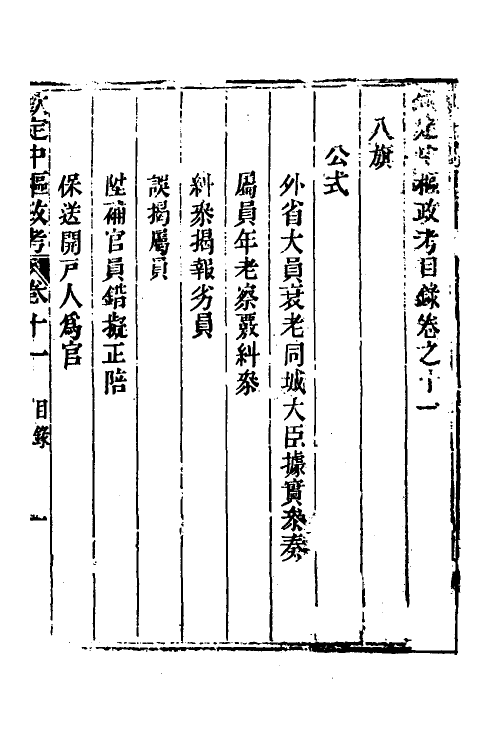 欽定中樞政考目錄卷之十一
八旗
公式
外省大員衰老同城大臣據實叅奏
屬員年老察覈糾叅
糾叅揭報劣員
誤揭屬員
陞補官員錯擬正陪
保送開戸人爲官
欽定中樞政考 卷十一 目錄 一